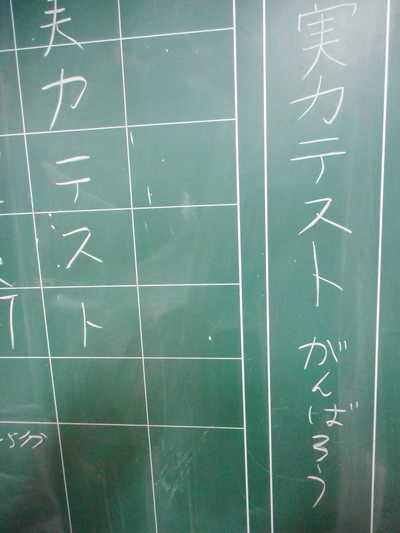 実力テスト がんばろう
実力テスト
5分